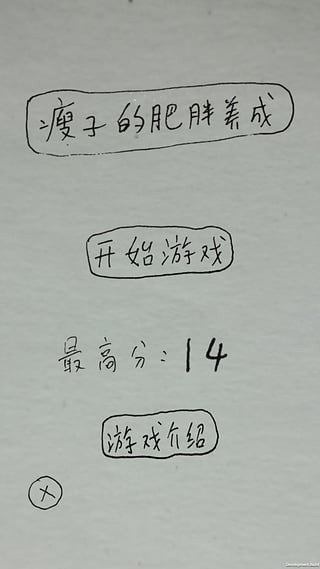 瘦子的肥胖养成
开始游戏
最高分：14
游戏介绍
X
Development Build